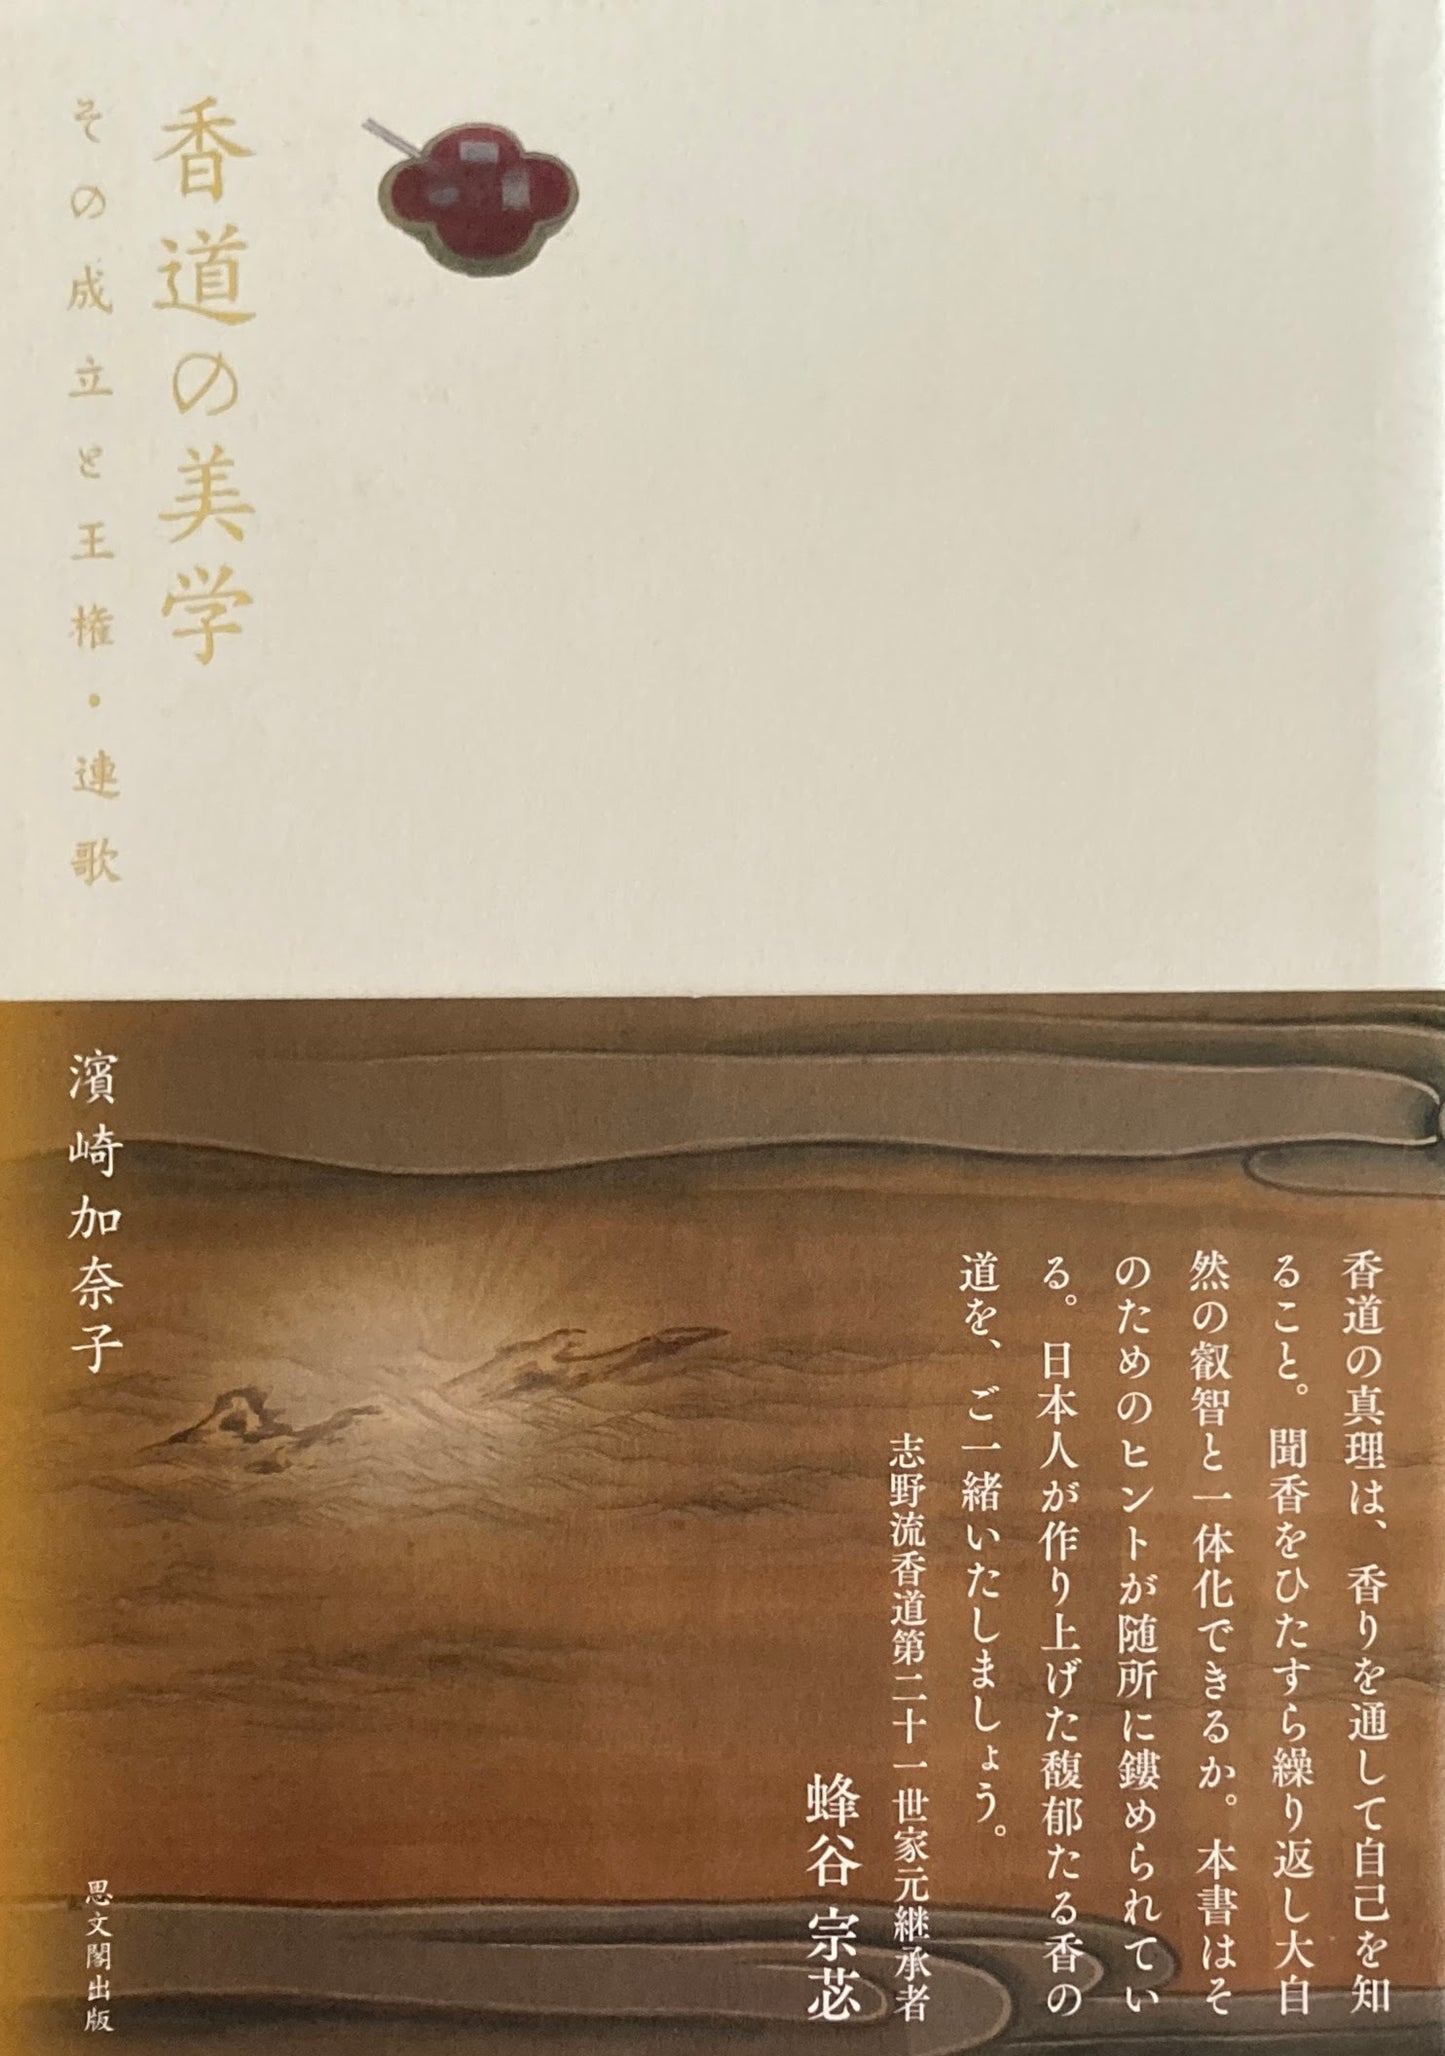 香道の美学
その成立と王権・連歌
濱崎加奈子
香道の真理は、香りを通して自己を知
ること。聞香をひたすら繰り返し大自
然の叡智と一体化できるか。本書はそ
のためのヒントが随所に鏤められてい
る。日本人が作り上げた馥郁たる香の
道を、ご一緒いたしましょう。
志野流香道第二十一世家元継承者
蜂谷宗苾
思文閣出版